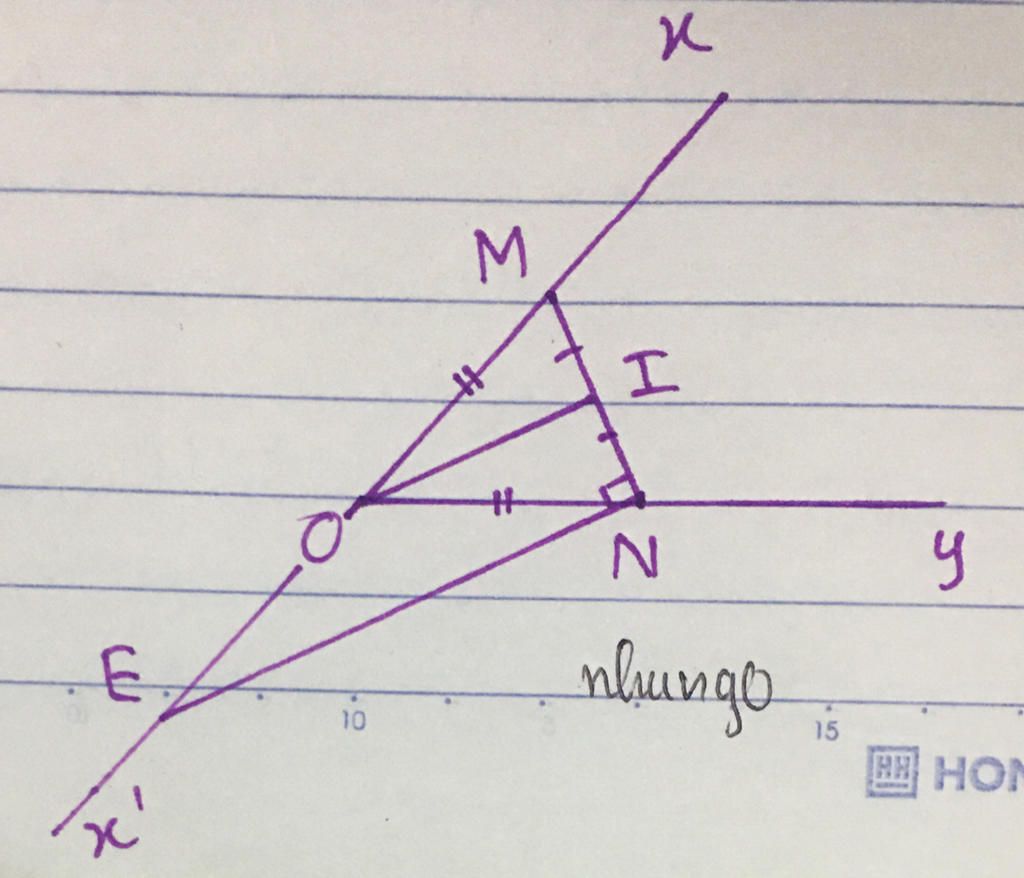 x
M
I
O
N
y
E
nhungo
10
15
x'
HH HON